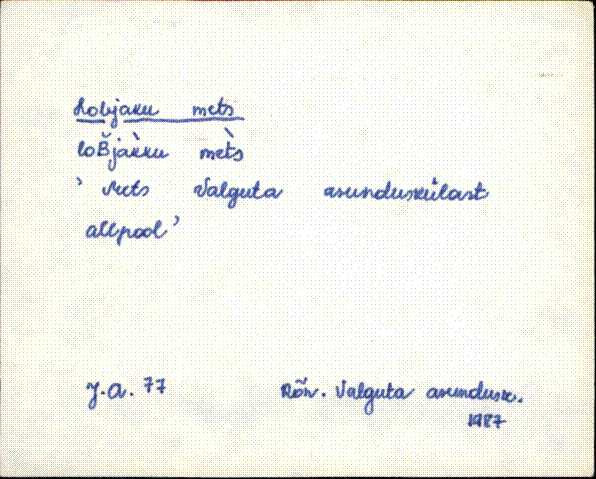 Lobjaku mets
loBjàkku mets̀
' Mets Valguta asunduskülast
allpool '
J.A. 77
Rõn. Valguta asundusk.
1987